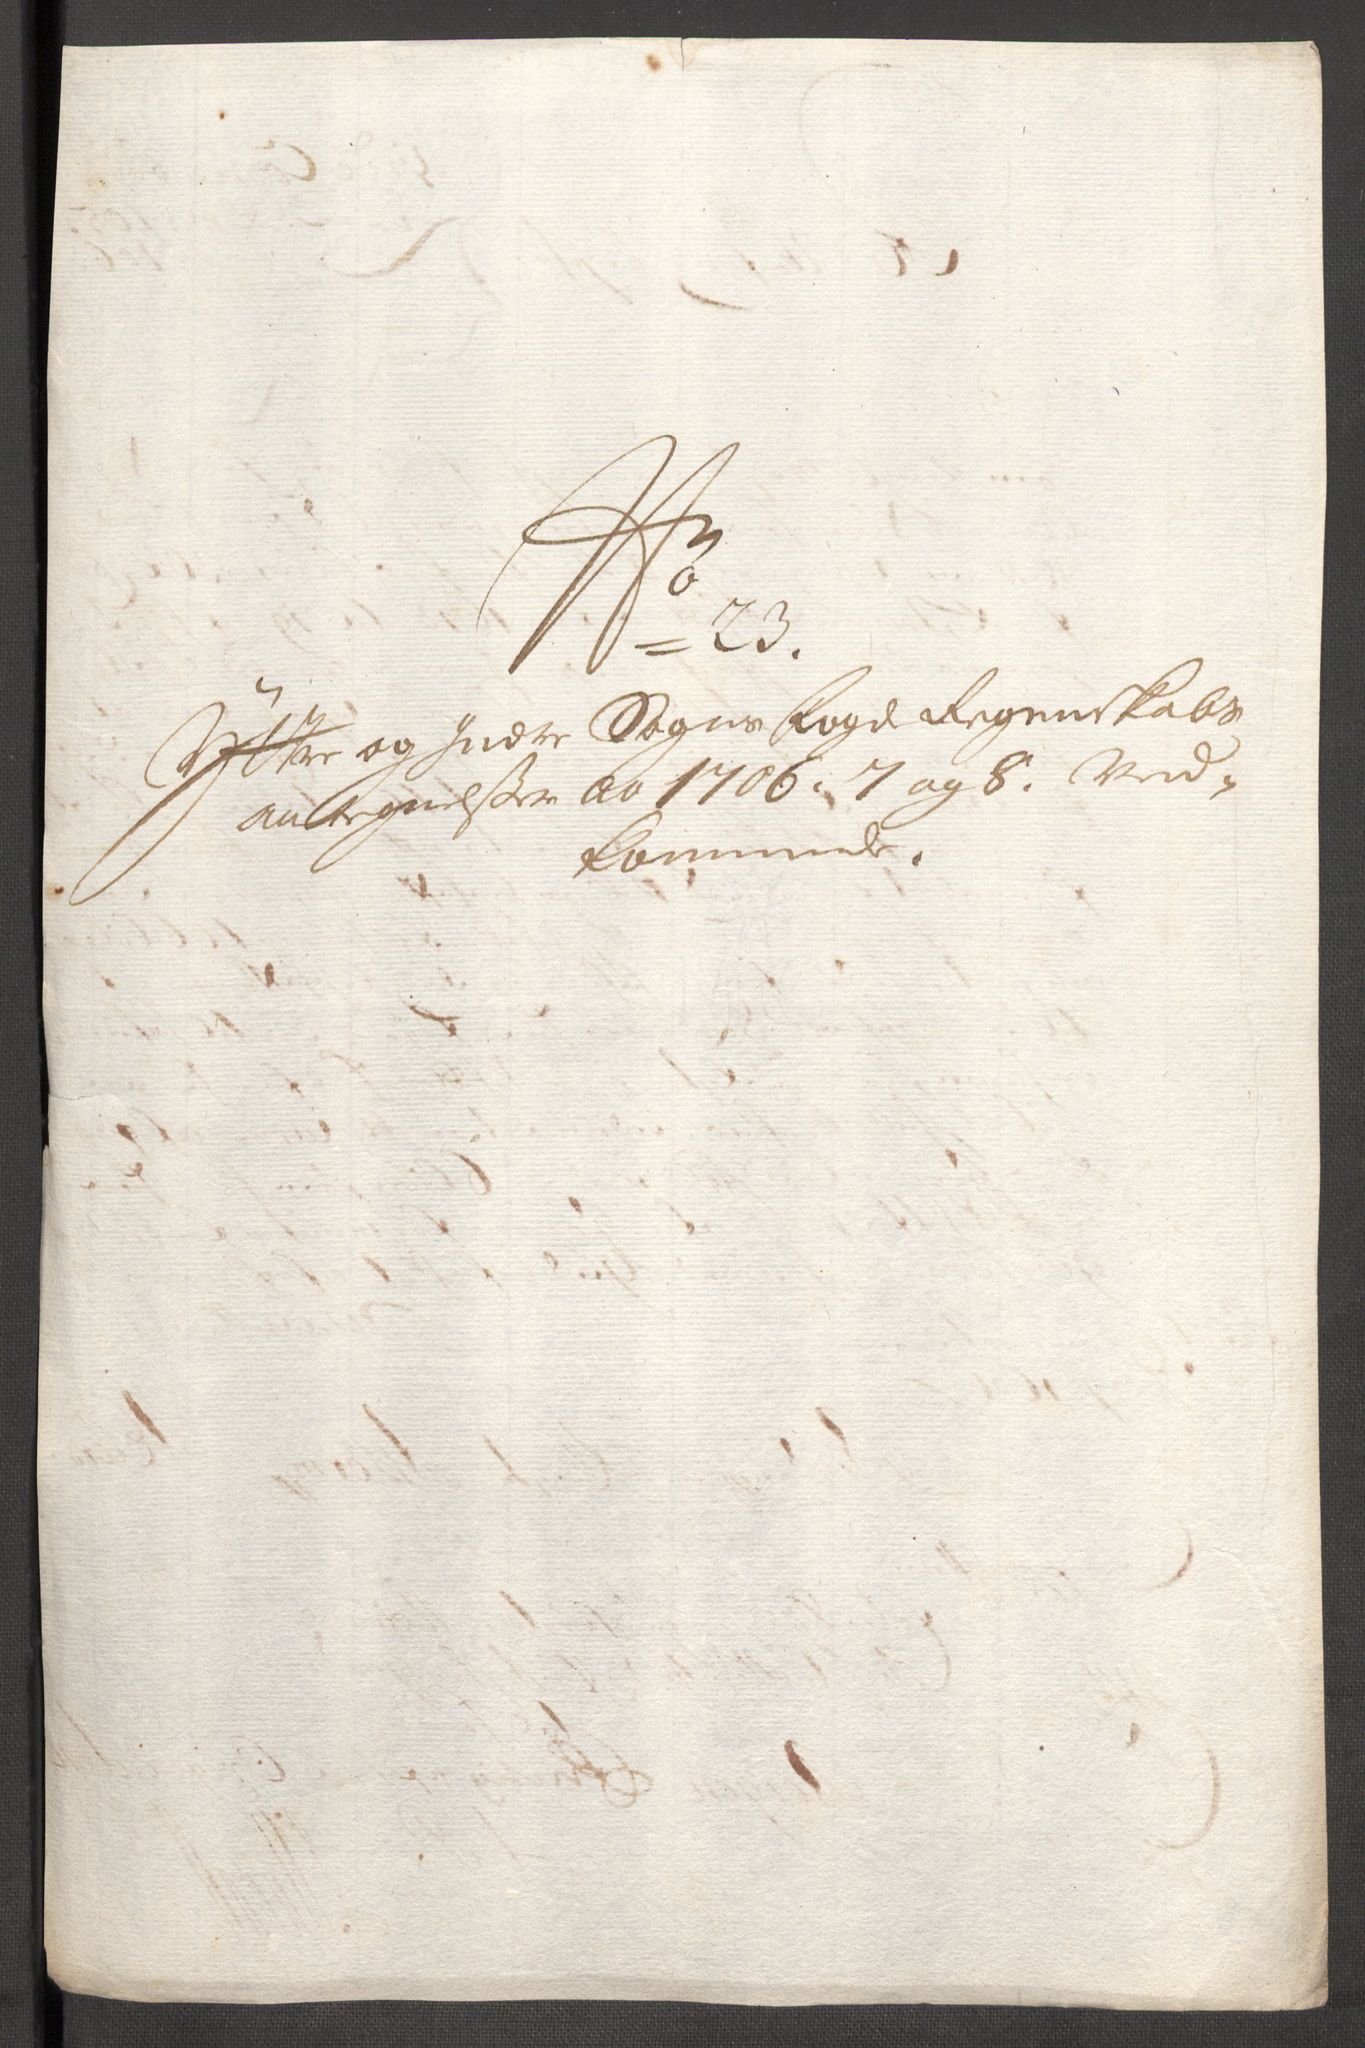 No
= 23.
Ÿttre og Indre Sogns Fogd Regenskabs
antegnelsser Ao 1706. 7 og 8. Ved-
kommende.